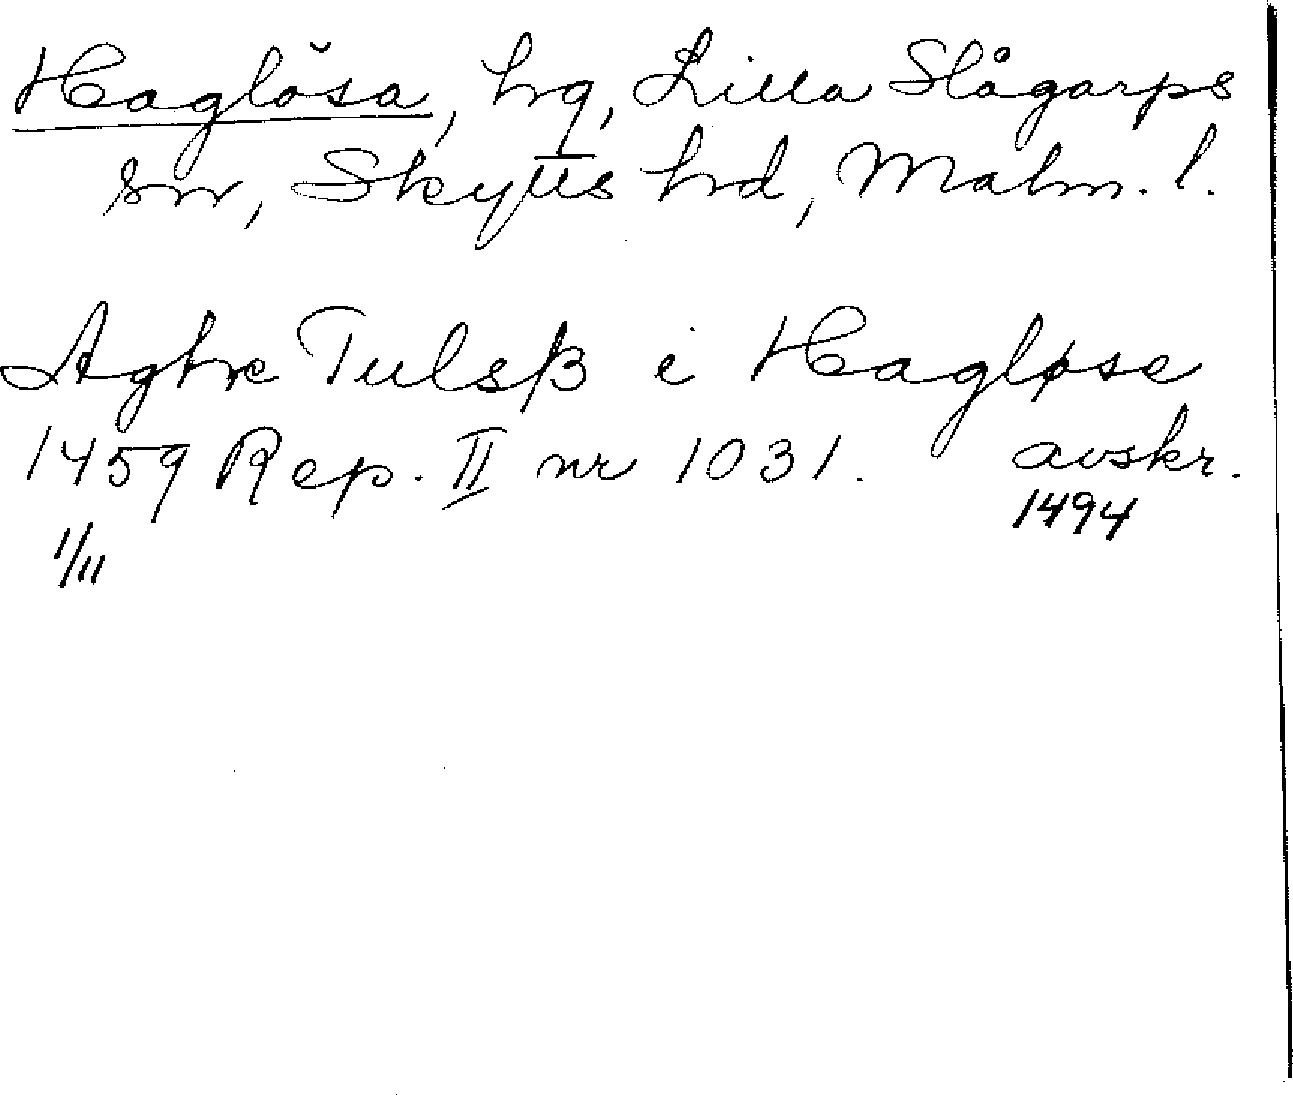 Haglösa, hg, Lilla Slågarps
sn, Skytts hd, Malm. l.
Aghe Tulsß i Hagløse
1459 Rep. II nr 1031. avskr.
1494
1/11